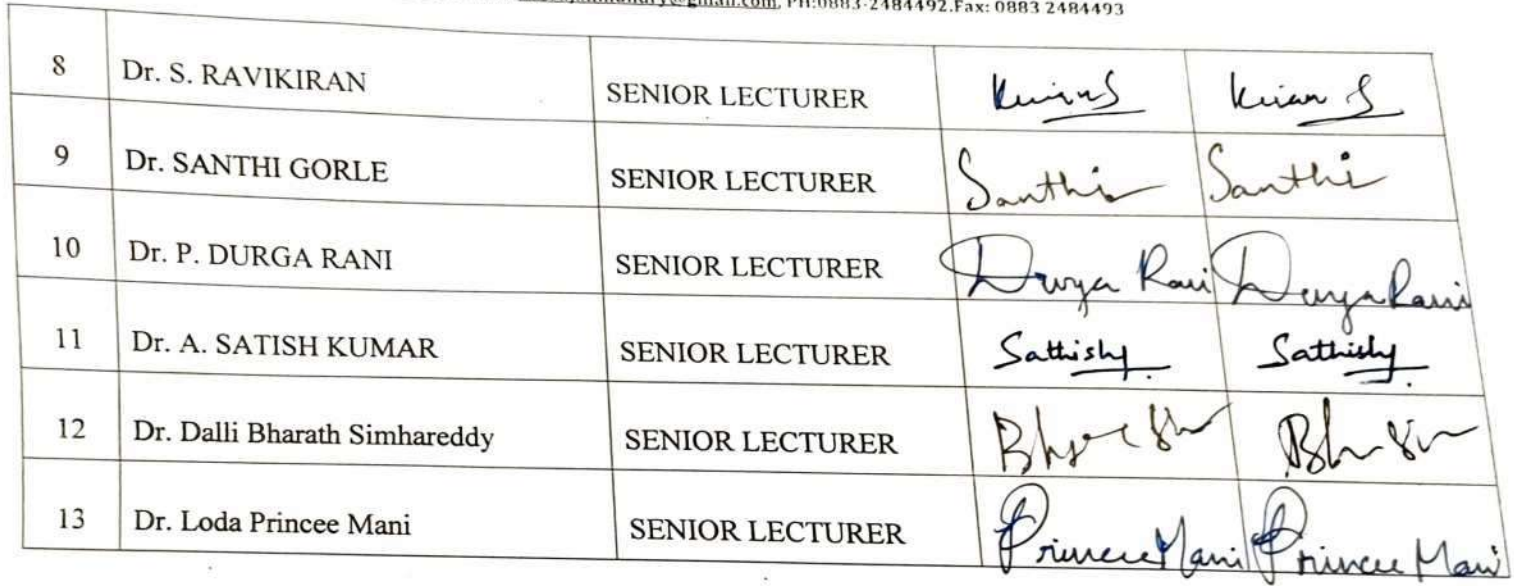 @gmail.com, PH:0883-2484492.Fax: 0883 2484493
8 Dr. S. RAVIKIRAN SENIOR LECTURER Kiran S Kiran S
9 Dr. SANTHI GORLE SENIOR LECTURER Santhi Santhi
10 Dr. P. DURGA RANI SENIOR LECTURER Durga Rani Durga Rani
11 Dr. A. SATISH KUMAR SENIOR LECTURER Sathish Sathish
12 Dr. Dalli Bharath Simhareddy SENIOR LECTURER
13 Dr. Loda Princee Mani SENIOR LECTURER Princee Mani Princee Mani